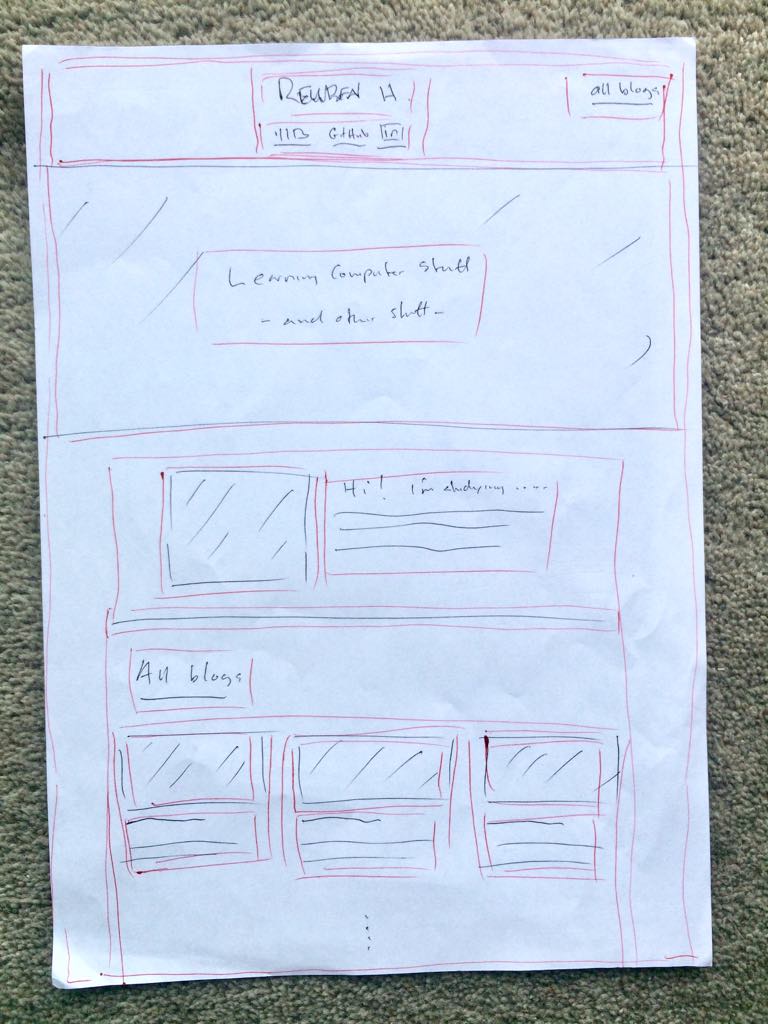 REUBEN H
all blogs
GitHub in
Learning Computer Stuff
- and other stuff -
Hi! I'm studying ....
All blogs